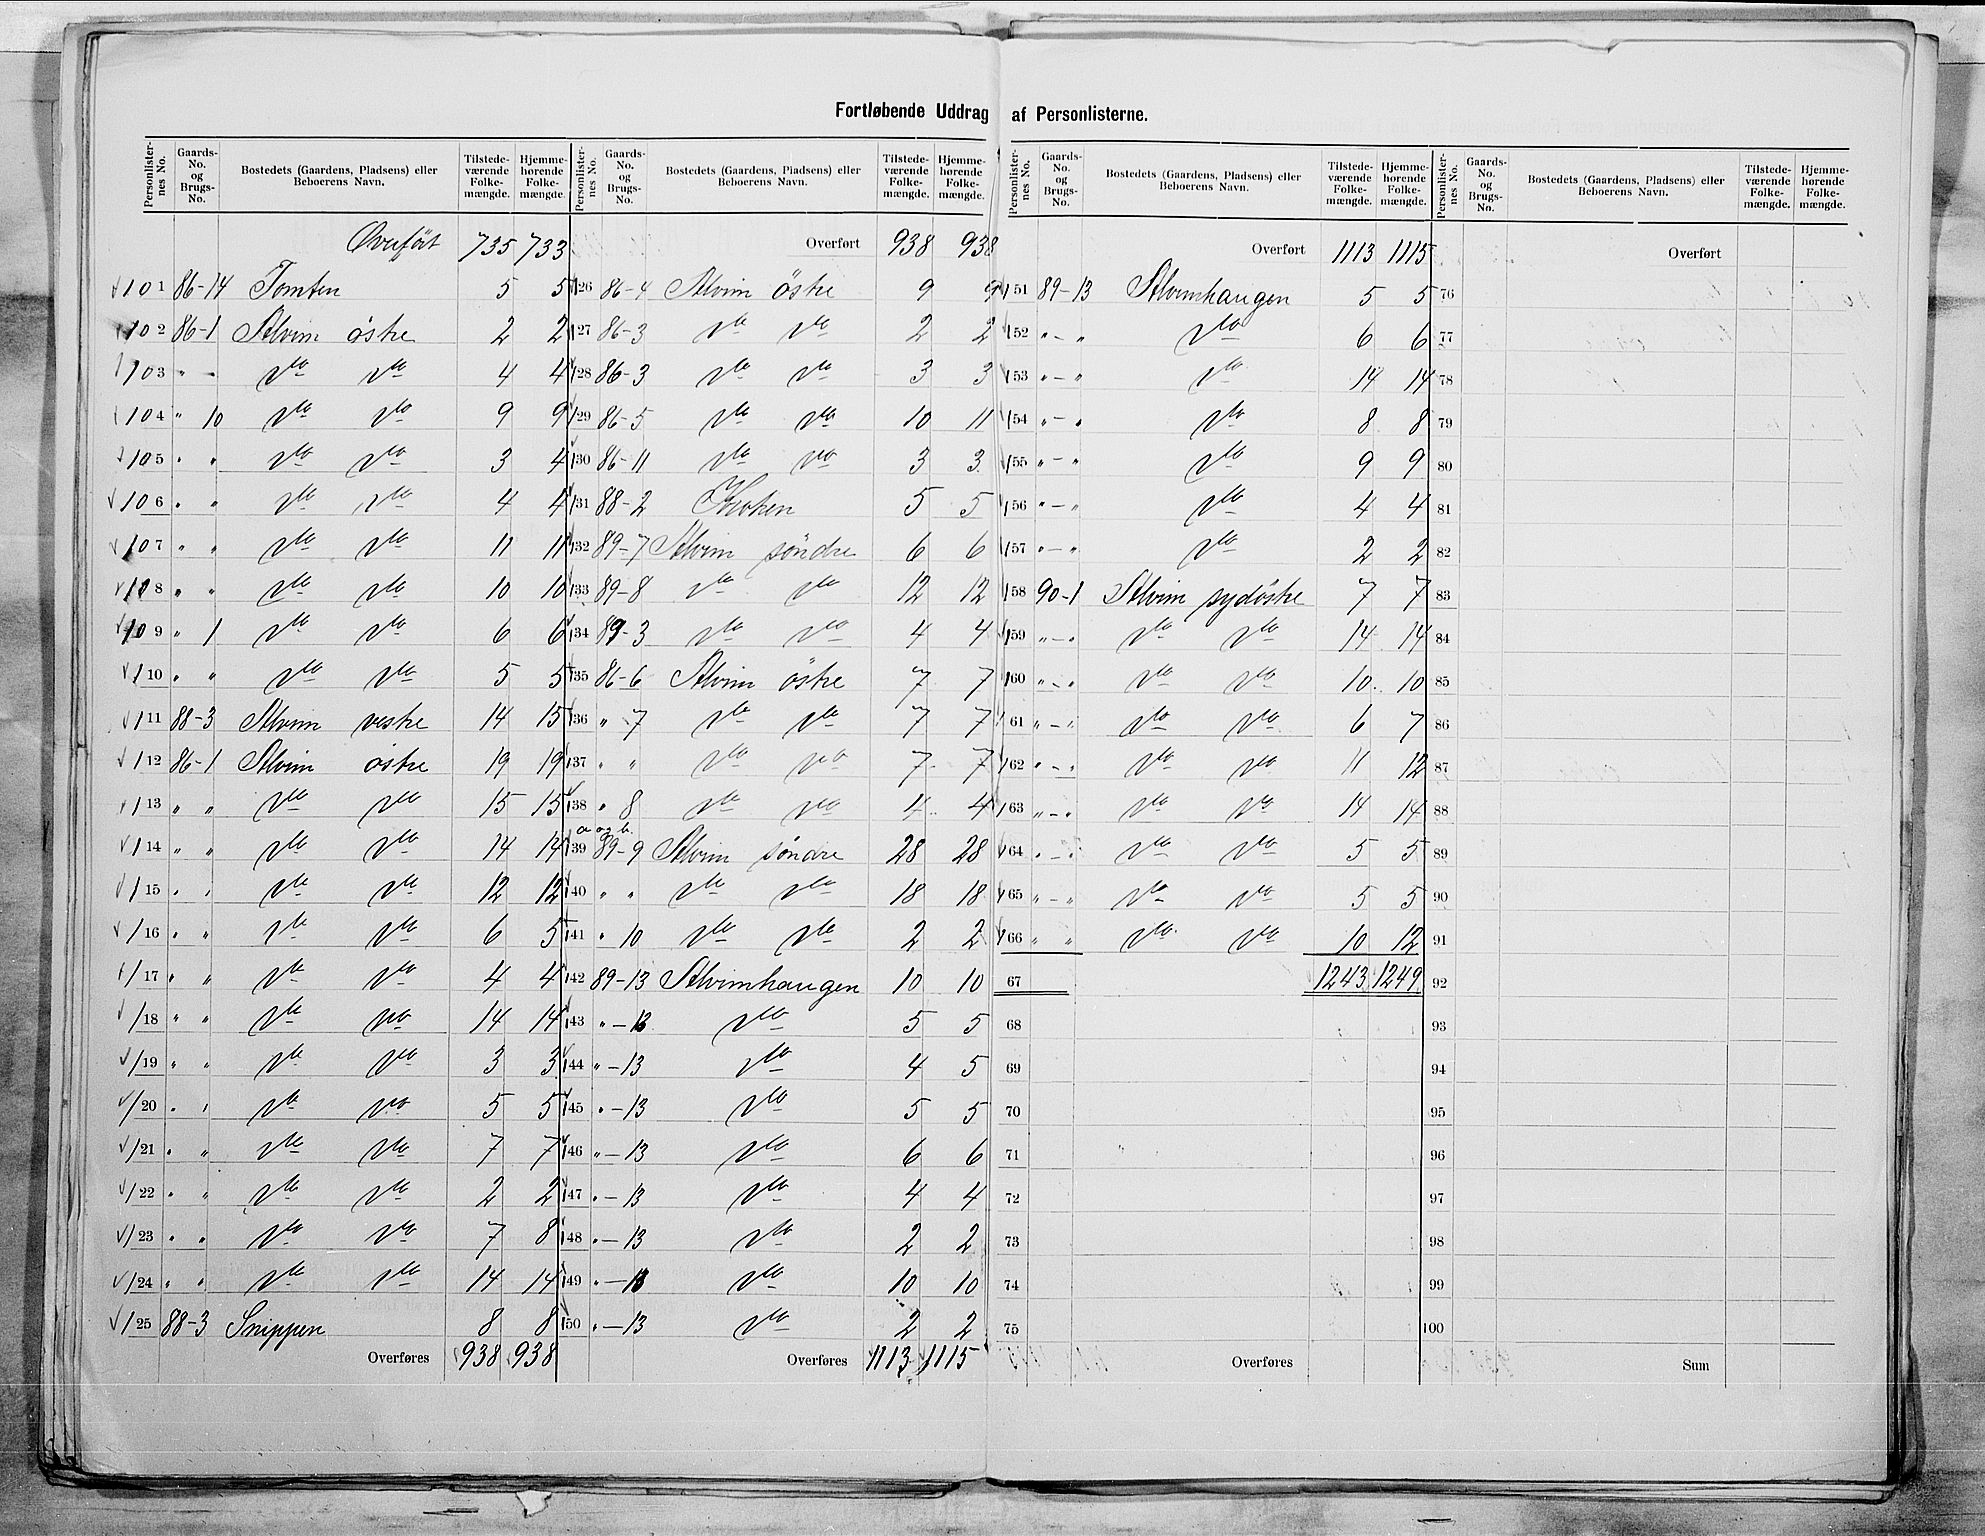 Fortløbende Uddrag af Personlisterne.
Personlisternes No. Gaards-No. og Brugs-No. Bostedets (Gaardens, Pladsens) eller Beboerens Navn. Tilstedeværende Folkemængde. Hjemmehørende Folkemængde.
Overført 735 733
101 86-14 Tomten 5 5
102 86-1 Alvim östre 2 2
103 " " dto dto 4 4
104 " 10 dto dto 9 9
105 " " dto dto 3 4
106 " " dto dto 4 4
107 " " dto dto 11 11
108 " " dto dto 10 10
109 " 1 dto dto 6 6
110 " " dto dto 5 5
111 88-3 Alvim vestre 14 15
112 86-1 Alvim östre 19 19
113 " " dto dto 15 15
114 " " dto dto 14 14
115 " " dto dto 12 12
116 " " dto dto 6 5
117 " " dto dto 4 4
118 " " dto dto 14 14
119 " " dto dto 3 3
120 " " dto dto 5 5
121 " " dto dto 7 7
122 " " dto dto 2 2
123 " " dto dto 7 8
124 " " dto dto 14 14
125 88-3 Snippen 8 8
Overføres 938 938
Personlisternes No. Gaards-No. og Brugs-No. Bostedets (Gaardens, Pladsens) eller Beboerens Navn. Tilstedeværende Folkemængde. Hjemmehørende Folkemængde.
Overført 938 938
126 86-4 Alvim östre 9 9
127 86-3 dto dto 2 2
128 86-3 dto dto 3 3
129 86-5 dto dto 10 11
130 86-11 dto dto 3 3
131 88-2 Kroken 5 5
132 89-7 Alvim söndre 6 6
133 89-8 dto dto 12 12
134 89-3 dto dto 4 4
135 86-6 Alvim östre 7 7
136 " 7 dto dto 7 7
137 " " dto dto 7 7
138 " 8 dto dto 4 4
a og b.
139 89-9 Alvim söndre 28 28
140 " " dto dto 18 18
141 " 10 dto dto 2 2
142 89-13 Alvimhaugen 10 10
143 "-13 dto 5 5
144 "-13 dto 4 5
145 "-13 dto 5 5
146 "-13 dto 6 6
147 "-13 dto 4 4
148 "-13 dto 2 2
149 "-13 dto 10 10
150 "-13 dto 2 2
Overføres 1113 1115
Personlisternes No. Gaards-No. og Brugs-No. Bostedets (Gaardens, Pladsens) eller Beboerens Navn. Tilstedeværende Folkemængde. Hjemmehørende Folkemængde.
Overført 1113 1115
151 89-13 Alvimhaugen 5 5
152 "-" dto 6 6
153 "-" dto 14 14
154 "-" dto 8 8
155 "-" dto 9 9
156 "-" dto 4 4
157 "-" dto 2 2
158 90-1 Alvim sydöstre 7 7
159 "-" dto dto 14 14
160 "-" dto dto 10 10
161 "-" dto dto 6 7
162 "-" dto dto 11 12
163 "-" dto dto 14 14
164 "-" dto dto 5 5
165 "-" dto dto 5 5
166 " " dto dto 10 12
67 1243 1249
68
69
70
71
72
73
74
75
Overføres
Personlisternes No. Gaards-No. og Brugs-No. Bostedets (Gaardens, Pladsens) eller Beboerens Navn. Tilstedeværende Folkemængde. Hjemmehørende Folkemængde.
Overført
76
77
78
79
80
81
82
83
84
85
86
87
88
89
90
91
92
93
94
95
96
97
98
99
100
Sum